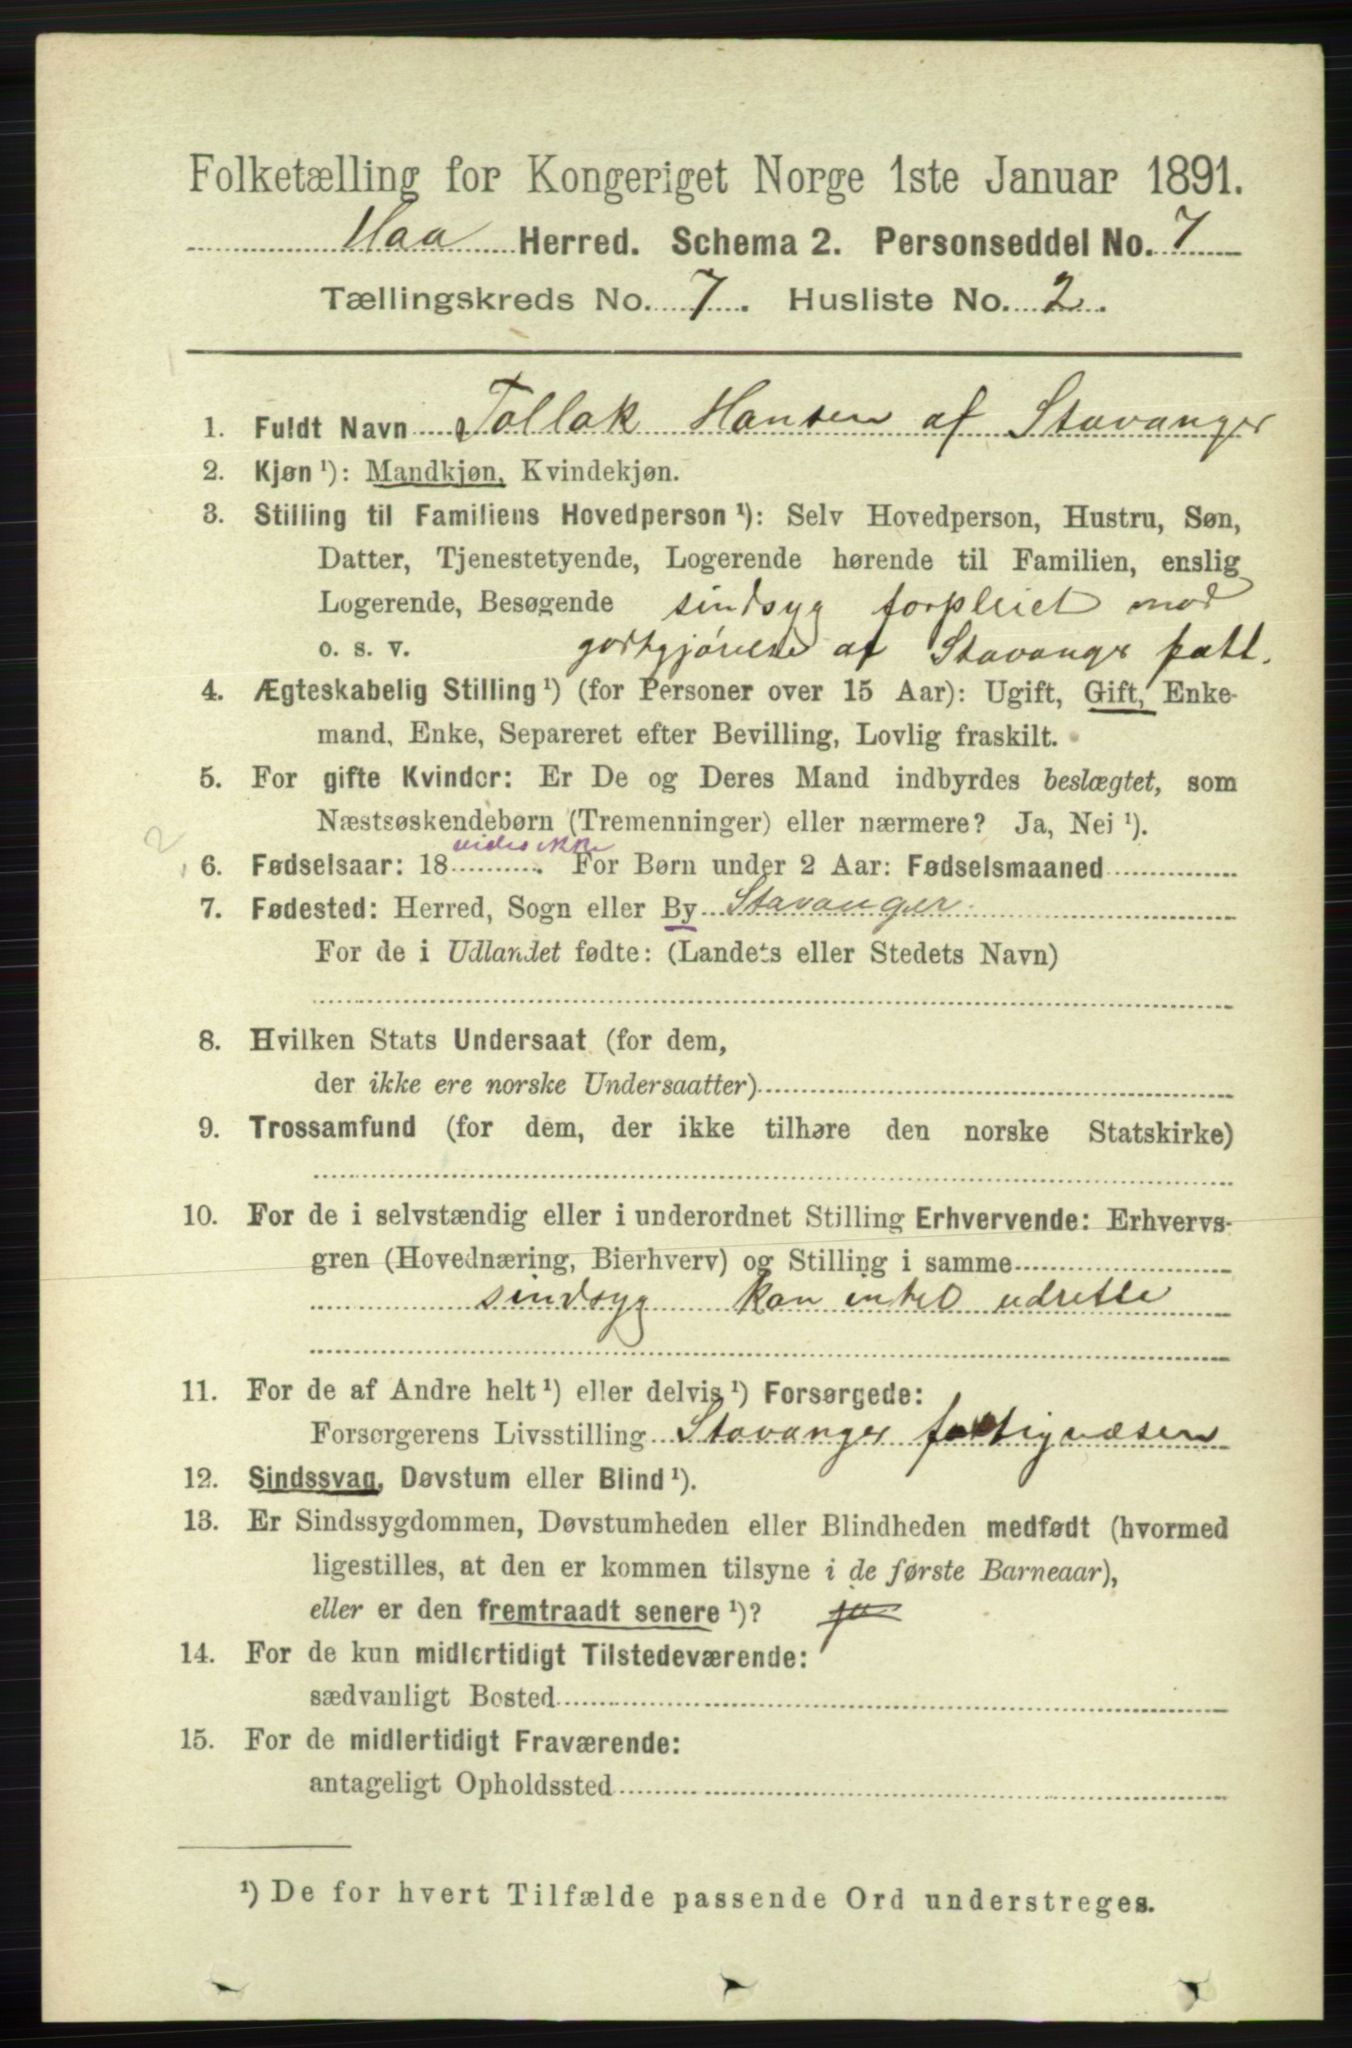 Folketælling for Kongeriget Norge 1ste Januar 1891.
Haa Herred. Schema 2. Personseddel No. 7
Tællingskreds No. 7. Husliste No. 2.
1. Fuldt Navn Tollak Hansen af Stavanger
2. Kjøn ¹): Mandkjøn, Kvindekjøn.
3. Stilling til Familiens Hovedperson ¹): Selv Hovedperson, Hustru, Søn,
Datter, Tjenestetyende, Logerende hørende til Familien, enslig
Logerende, Besøgende sindsyg forpleiet mod
o. s. v. godtgjørelse af Stavanger fatt.
4. Ægteskabelig Stilling ¹) (for Personer over 15 Aar): Ugift, Gift, Enke-
mand, Enke, Separeret efter Bevilling, Lovlig fraskilt.
5. For gifte Kvinder: Er De og Deres Mand indbyrdes beslægtet, som
Næstsøskendebørn (Tremenninger) eller nærmere? Ja, Nei ¹).
2
vides ikke
6. Fødselsaar: 18 . For Børn under 2 Aar: Fødselsmaaned
7. Fødested: Herred, Sogn eller By Stavanger
For de i Udlandet fødte: (Landets eller Stedets Navn)
8. Hvilken Stats Undersaat (for dem,
der ikke ere norske Undersaatter)
9. Trossamfund (for dem, der ikke tilhøre den norske Statskirke)
10. For de i selvstændig eller i underordnet Stilling Erhvervende: Erhvervs-
gren (Hovednæring, Bierhverv) og Stilling i samme
sindsyg kan intet udrette
11. For de af Andre helt ¹) eller delvis ¹) Forsørgede:
Forsørgerens Livsstilling Stavanger fattigvæsen
12. Sindssvag, Døvstum eller Blind ¹).
13. Er Sindssygdommen, Døvstumheden eller Blindheden medfødt (hvormed
ligestilles, at den er kommen tilsyne i de første Barneaar),
eller er den fremtraadt senere ¹)? ja
14. For de kun midlertidigt Tilstedeværende:
sædvanligt Bosted
15. For de midlertidigt Fraværende:
antageligt Opholdssted
¹) De for hvert Tilfælde passende Ord understreges.